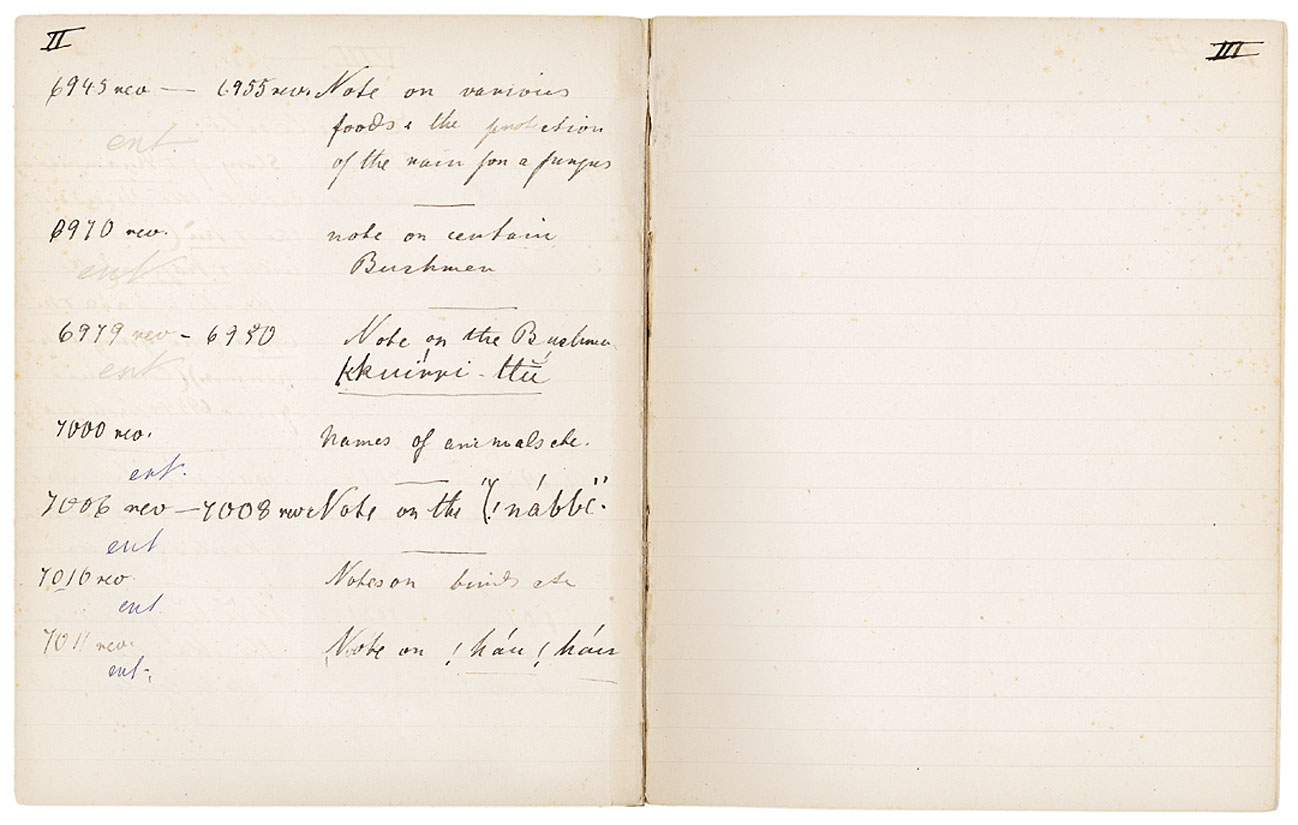 II
6945 rev — 6955 rev. Note on various
foods & the protection
ent
of the rain for a fungus
6970 rev. note on certain
ent Bushmen
6979 rev - 6980 Note on the Bushmen
ent
7000 rev. names of animals etc.
ent.
7006 rev — 7008 rev Note on the
ent
7016 rev Notes on birds etc
ent.
7011 rev. Note on !háu !háu
ent.
III